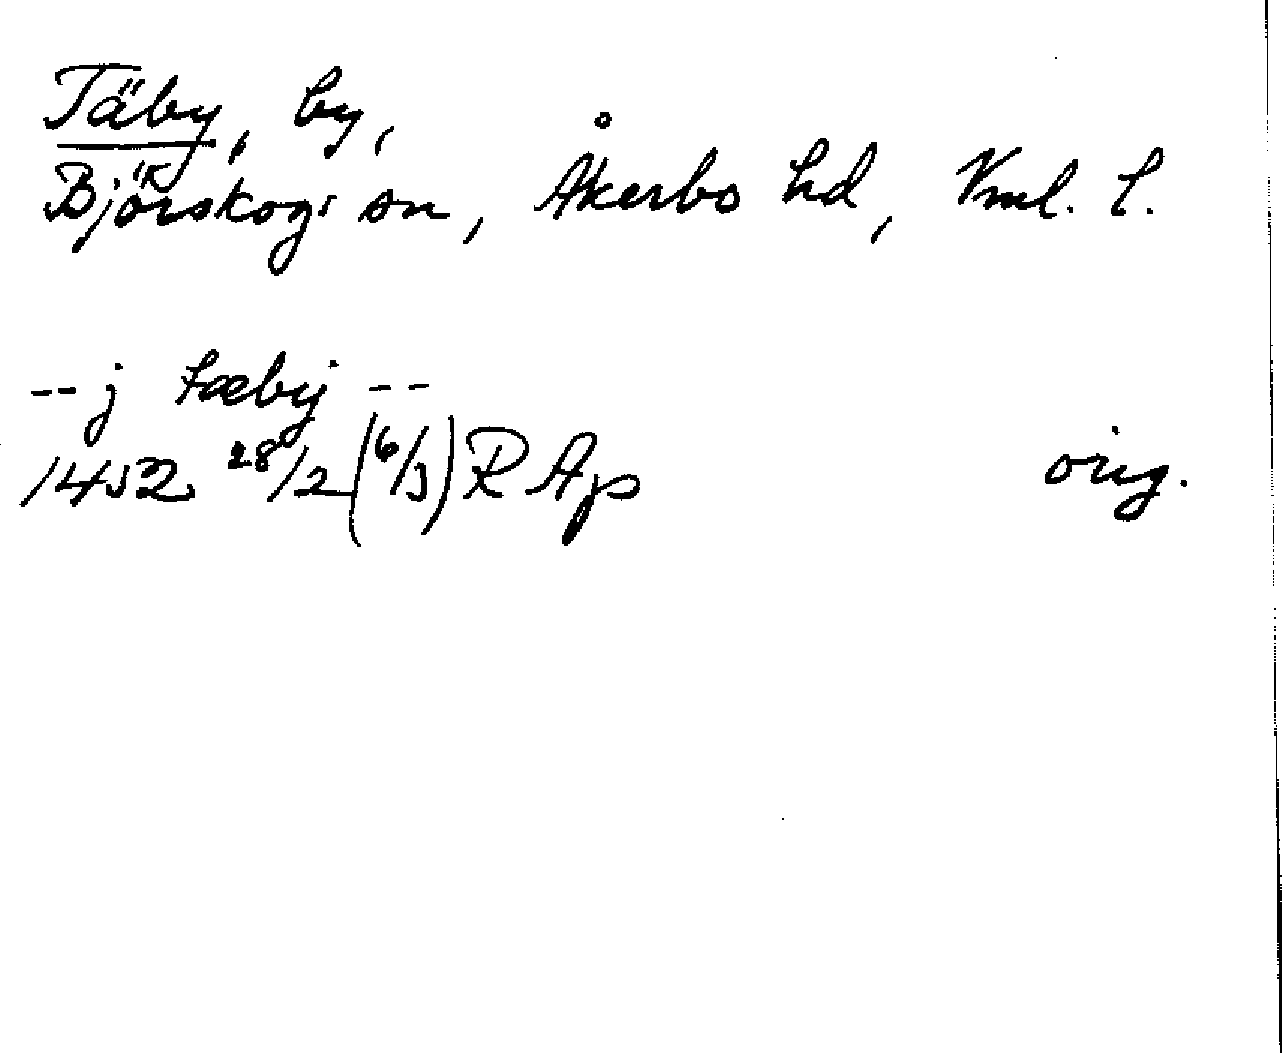 Täby, by,
Björskogs sn, Åkerbo hd, Vml. l.
-- j tæbÿ --
1452 28/2 (6/3) R Ap orig.